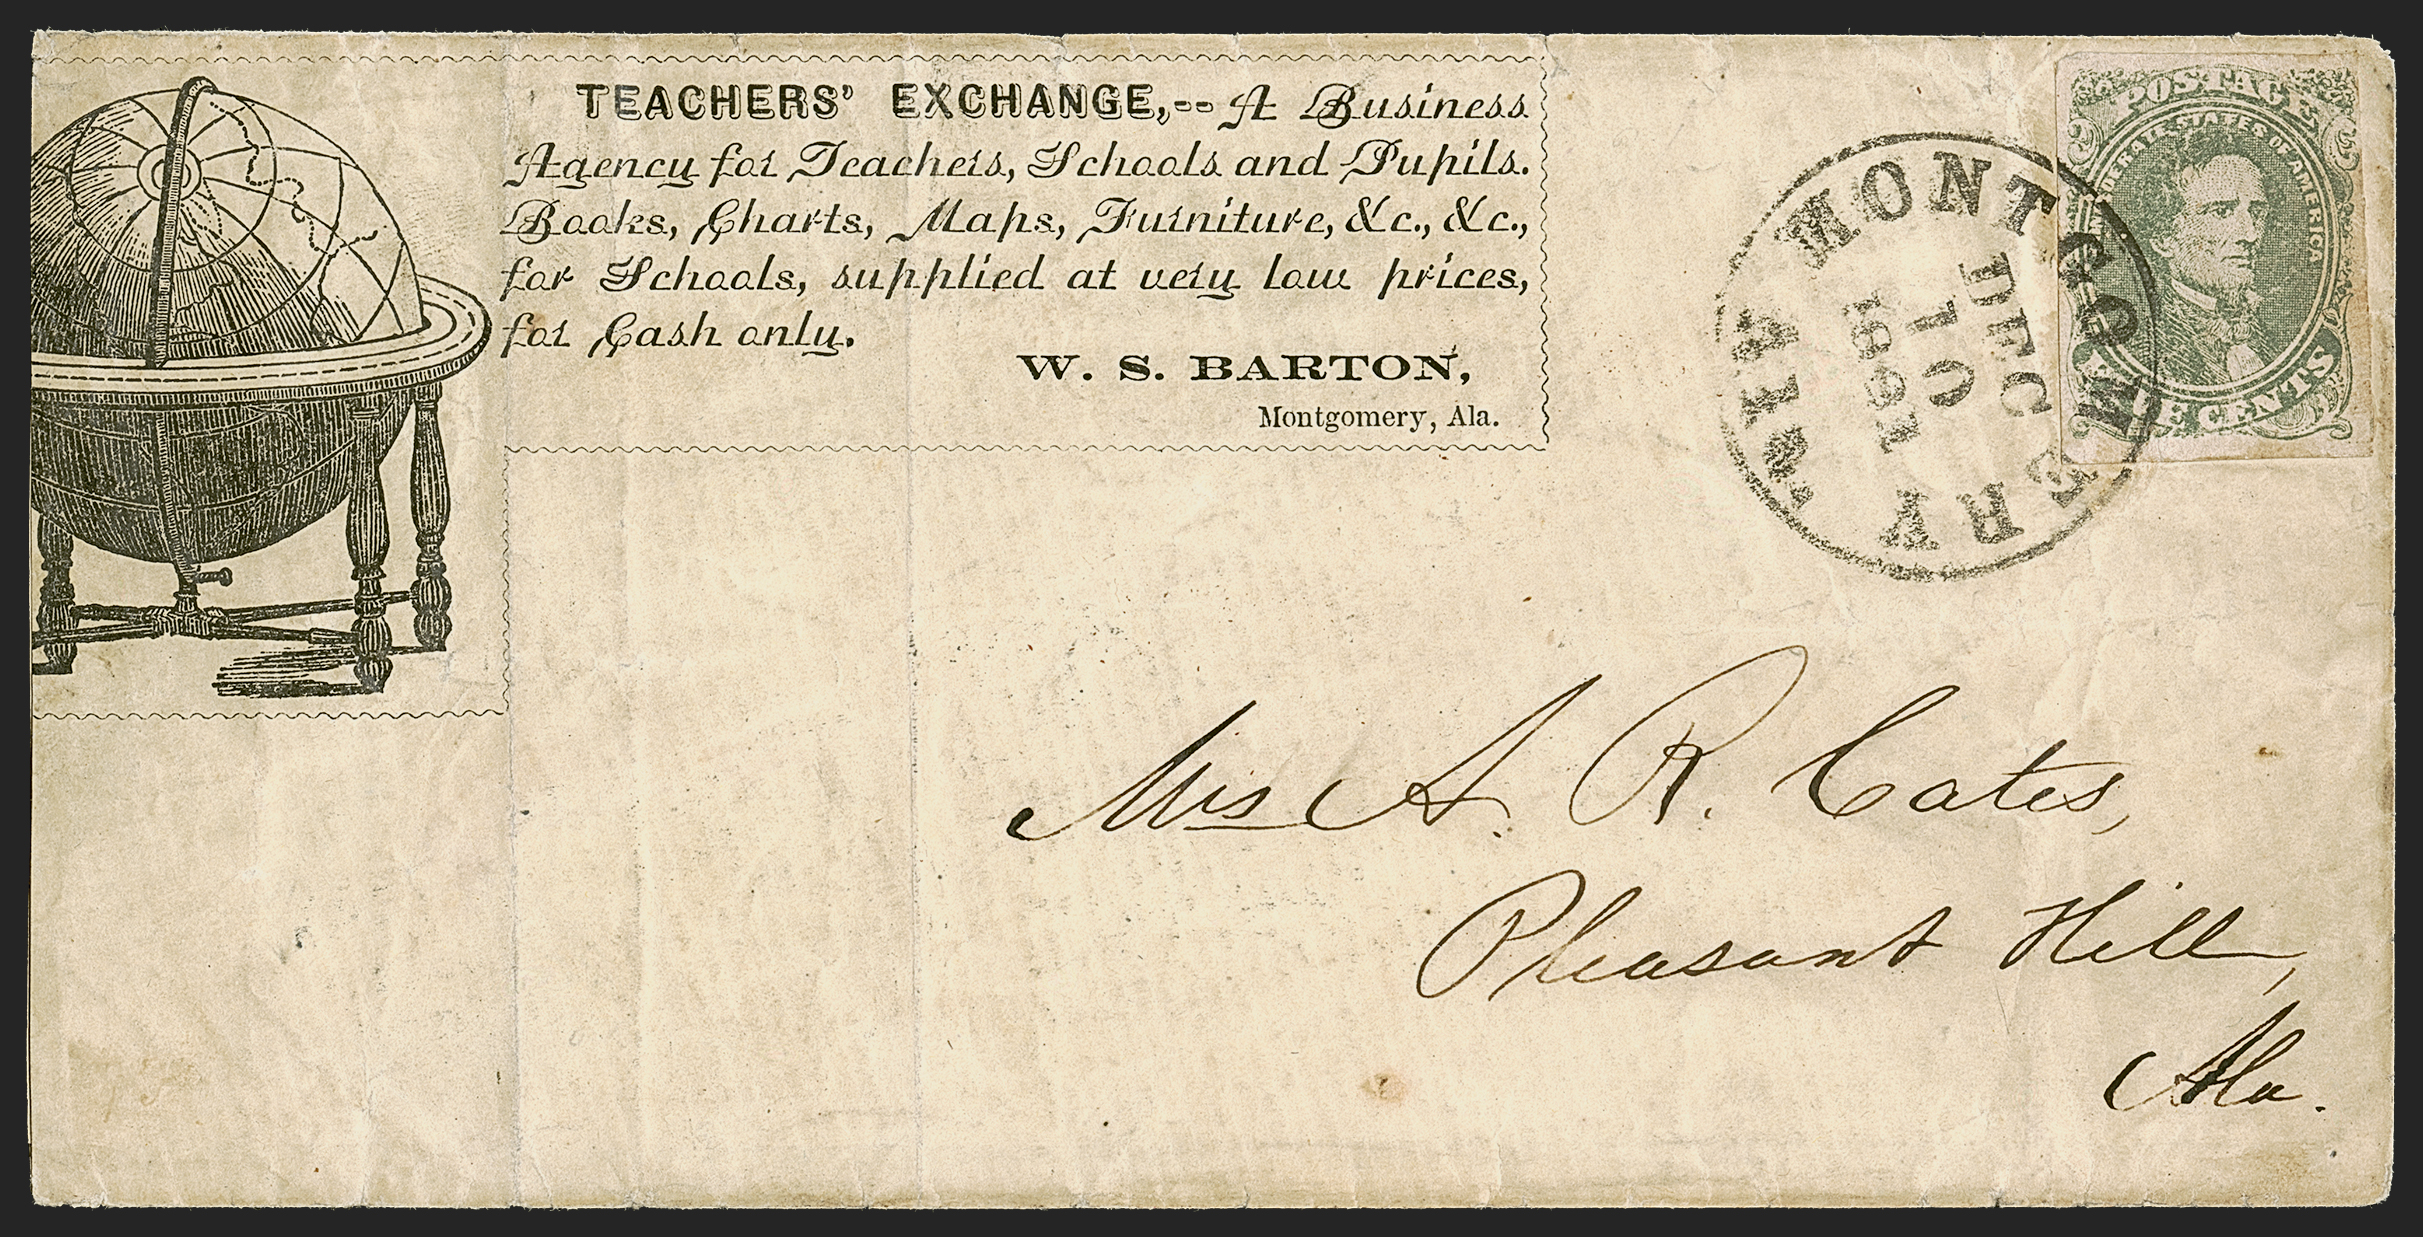 TEACHERS' EXCHANGE,-- A Business
Agency for Teachers, Schools and Pupils.
Books, Charts, Maps, Furniture, &c., &c.,
for Schools, supplied at very low prices,
for Cash only.
W. S. BARTON,
Montgomery, Ala.
POSTAGE
CONFEDERATE STATES OF AMERICA
FIVE CENTS
MONTGOMERY
DEC
1
1861
Mrs A. R. Cates,
Pleasant Hill,
Ala.